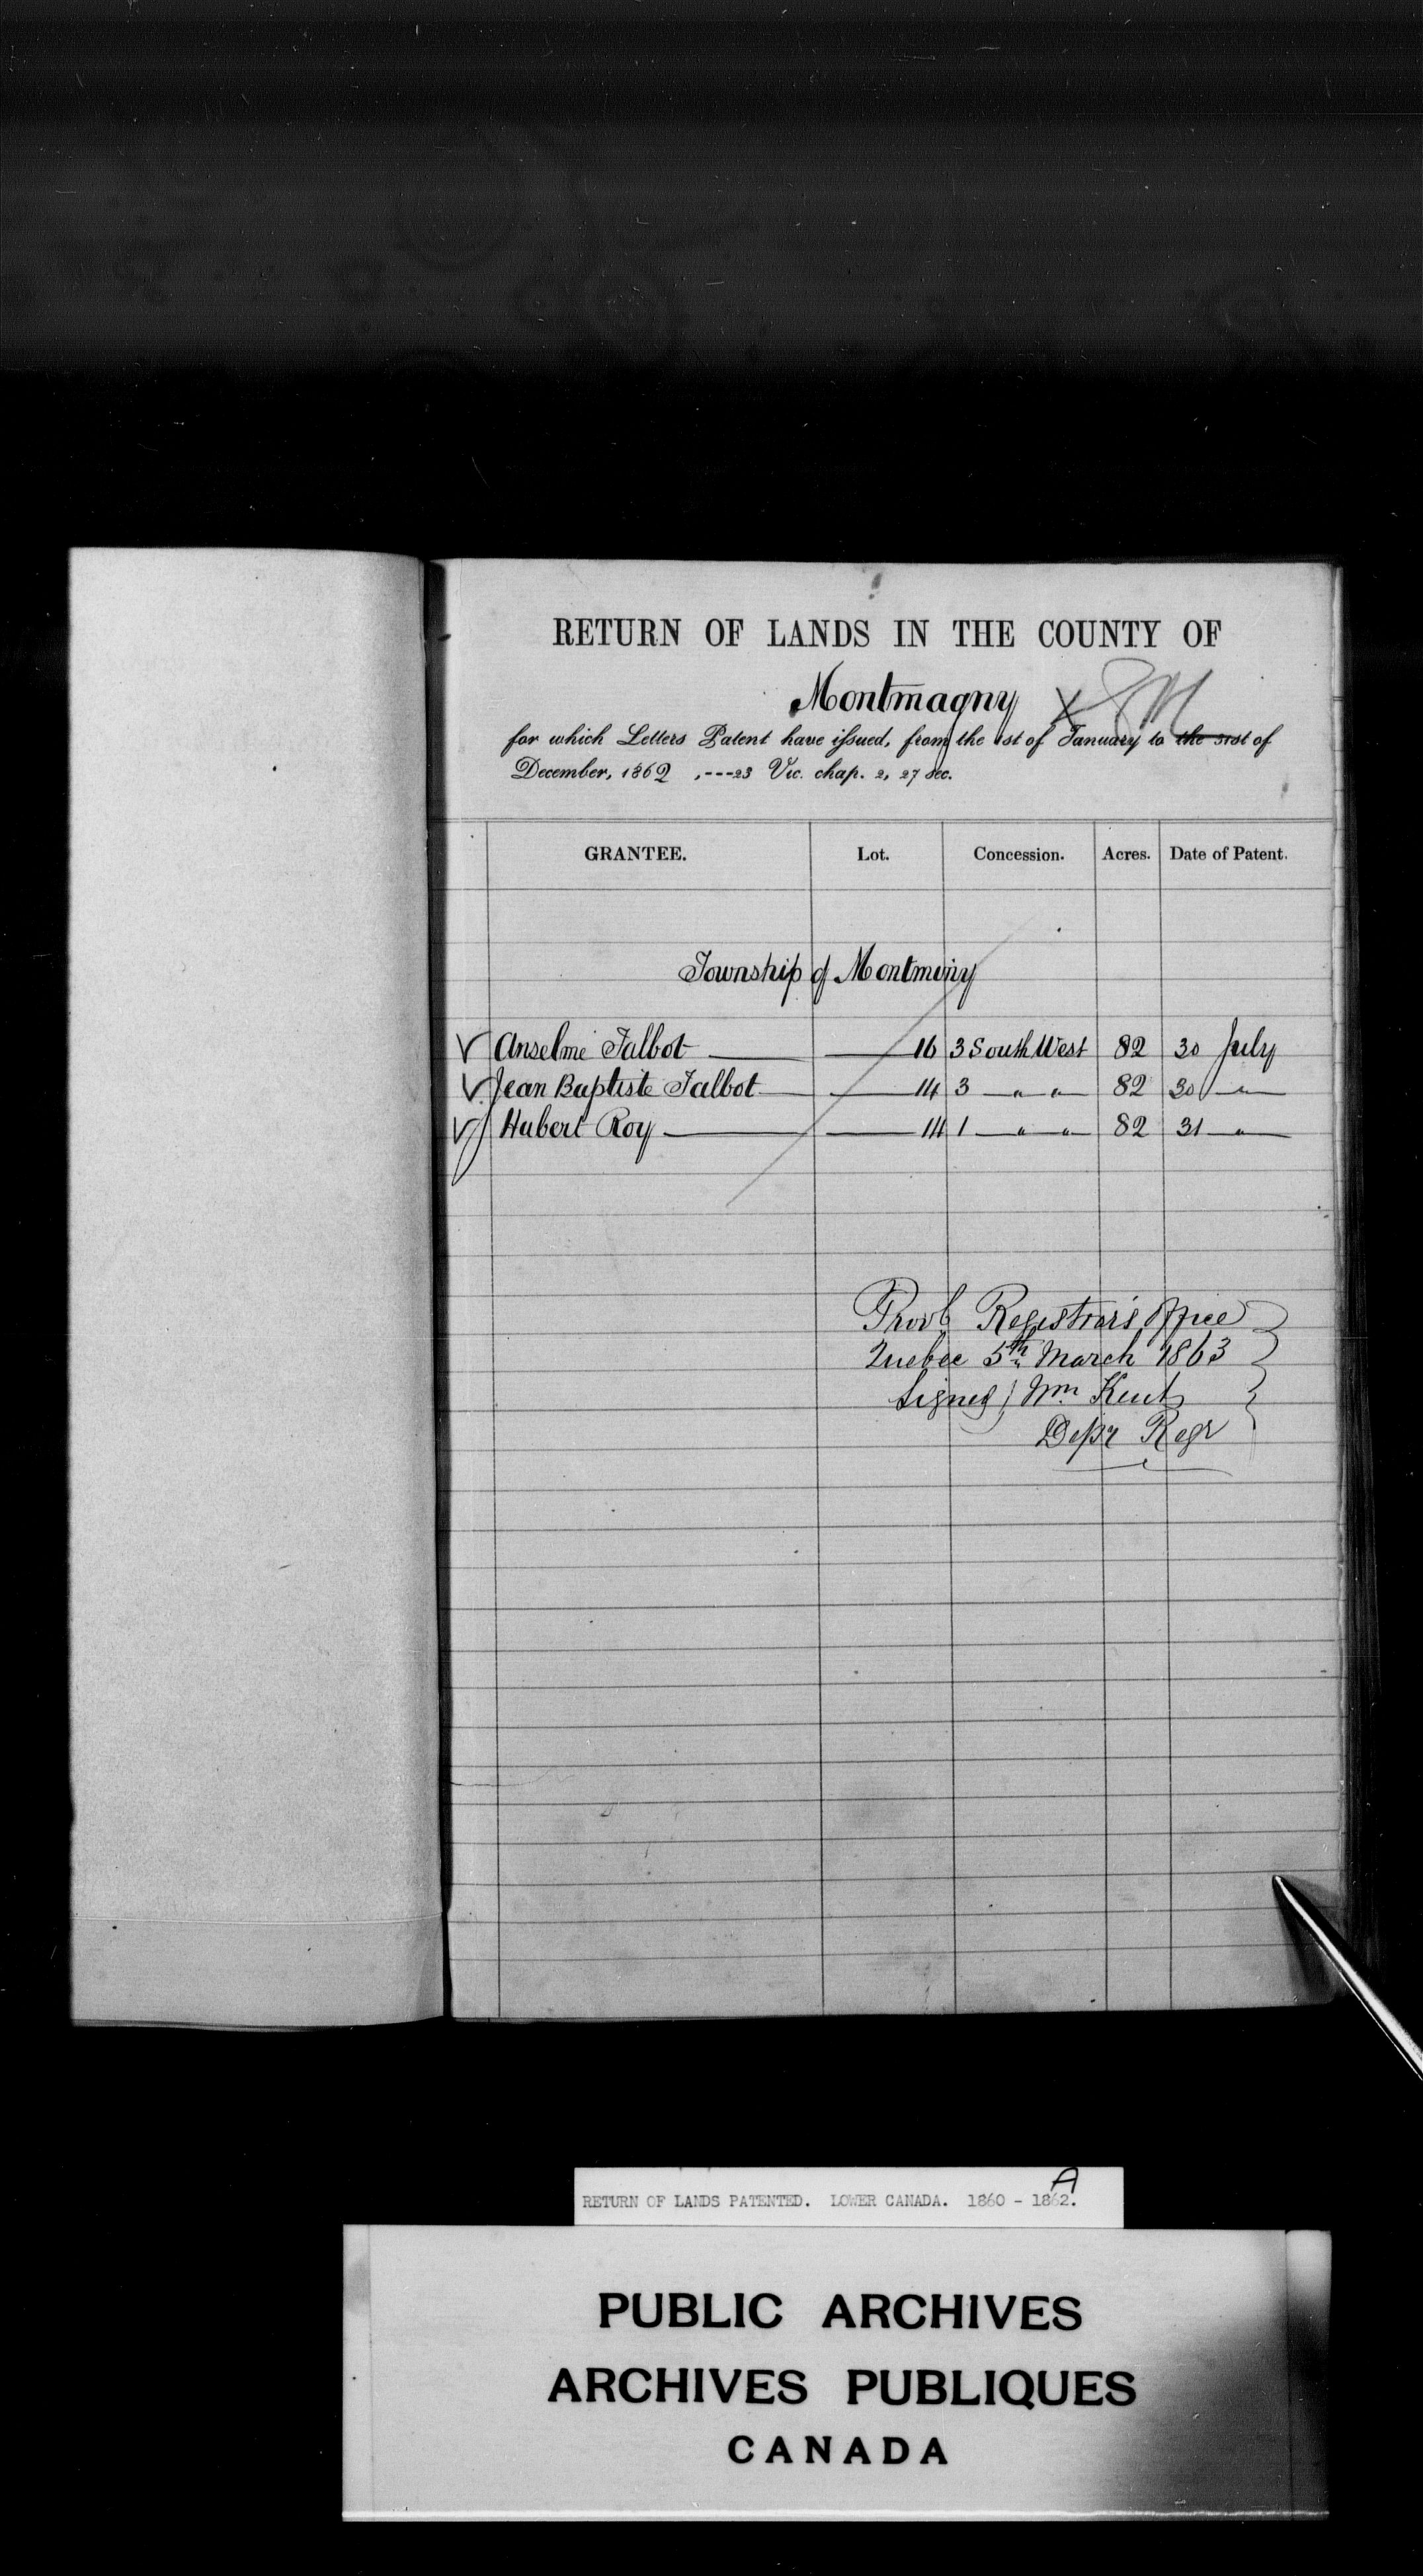 RETURN OF LANDS IN THE COUNTY OF
Montmagny X
for which Letters Patent have issued, from the 1st of January to the 31st of
December, 1862 ,---23 Vic. chap. 2, 27 sec.
GRANTEE. Lot. Concession. Acres. Date of Patent.
Township of Montminy
V Anselme Talbot 16 3 South West 82 30 July
V Jean Baptiste Talbot 14 3 " " 82 30 "
V Hubert Roy 14 1 " " 82 31 "
Provl Registrar's Office
Quebec 5th March 1863
Signed / Wm Kent
Depy Regr
A
RETURN OF LANDS PATENTED. LOWER CANADA. 1860 - 1862.
PUBLIC ARCHIVES
ARCHIVES PUBLIQUES
CANADA